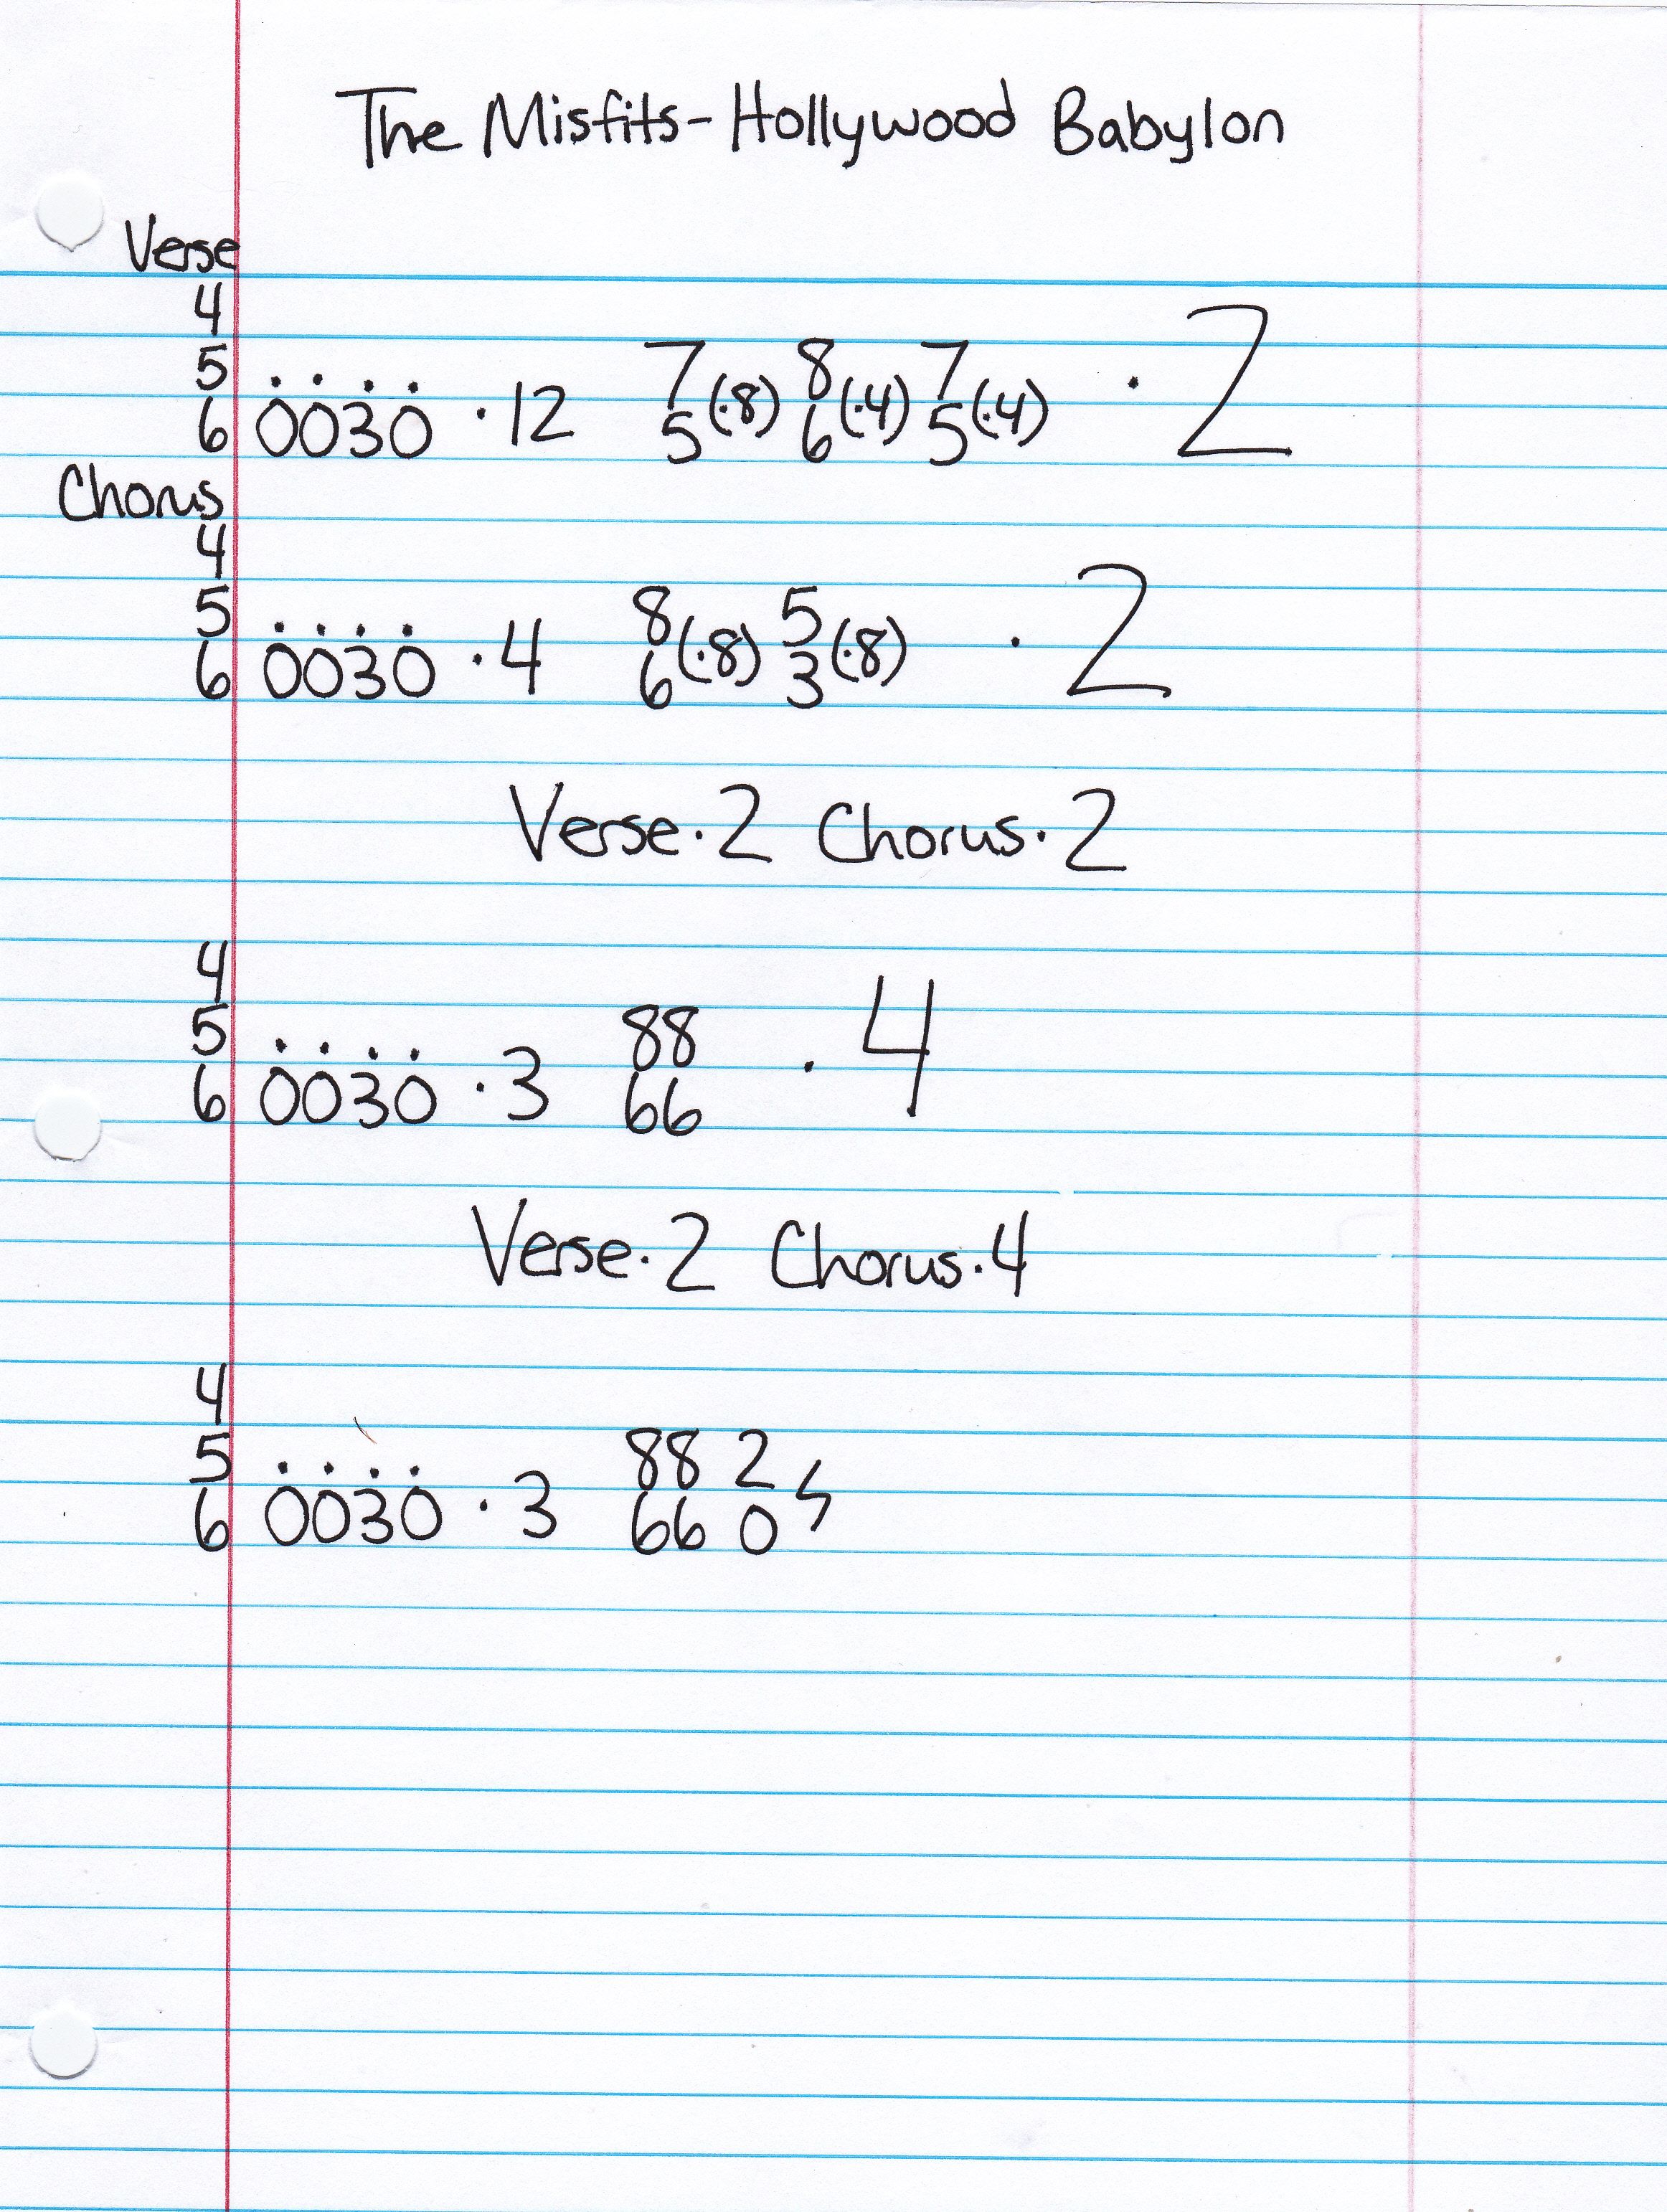 The Misfits - Hollywood Babylon
Verse
4
5 . . . . 7 8 7
6 0030 · 12 5(·8) 6(·4) 5(·4) · 2
Chorus
4
5 . . . . 8 5
6 0030 · 4 6(·8) 3(·8) · 2
Verse · 2 Chorus · 2
4
5 . . . . 88
6 0030 · 3 66 · 4
Verse · 2 Chorus · 4
4
5 . . . . 88 2
6 0030 · 3 66 0